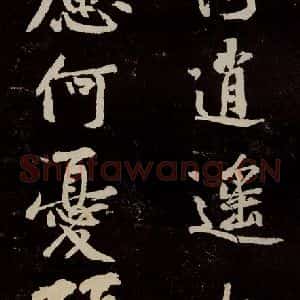 逍遙
何憂
Shufawang.CN